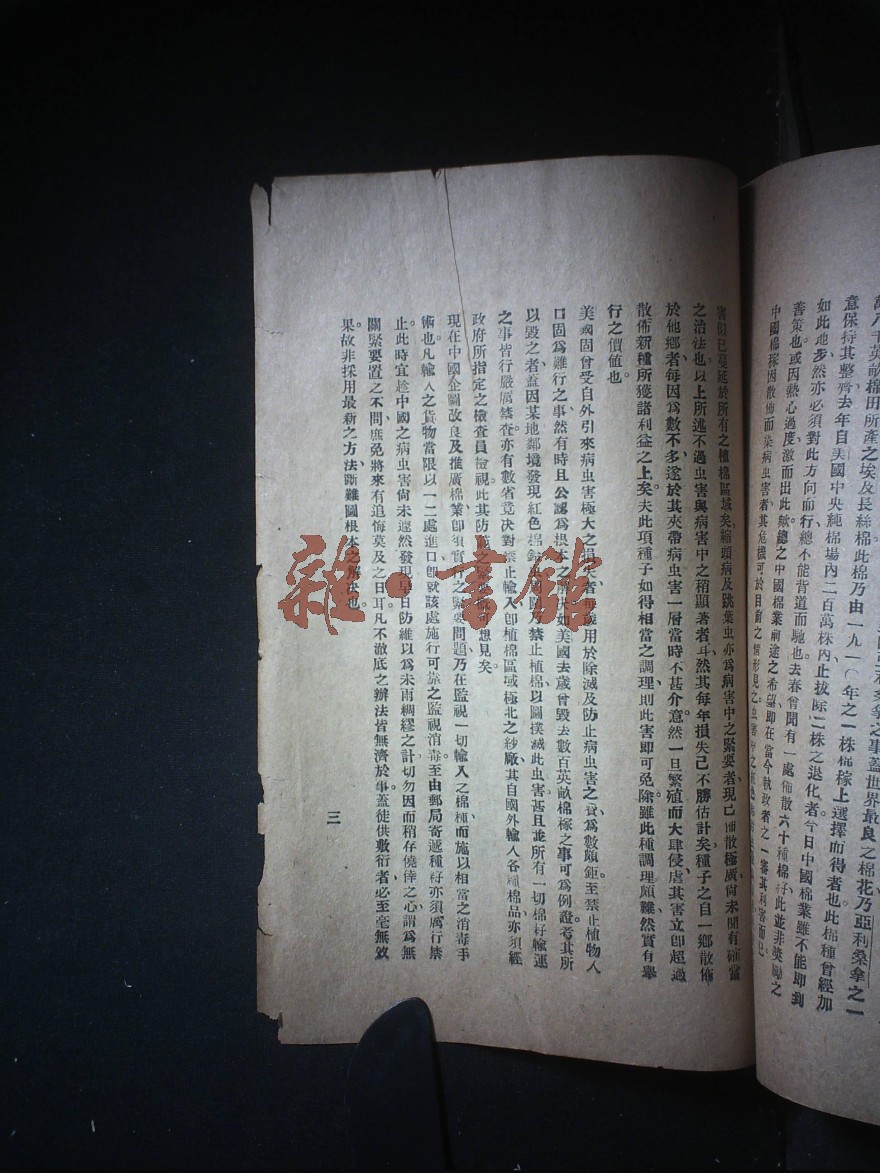 萬八千英畝棉田所產之埃及長絲棉此棉乃由一九一〇年之一株棉稼上選擇而得者也此棉種曾經加
意保持其整齊去年自美國中央純棉場內二百萬株內止拔除二株之退化者今日中國棉業雖不能即到
如此地步然亦必須對此方向而行總不能背道而馳也去春曾聞有一處佈散六十種棉籽此並非獎勵之
善策也或因熱心過度激而出此歟總之中國棉業前途之希望即在當今執政者之一審其利害而已
中國棉稼因散佈而染病虫害者其危機可於目前之情形見之
害但已蔓延於所有之植棉區域矣縮頭病及跳葉虫亦為病害中之緊要者現已佈散極廣尚未聞有確當
之治法也以上所述不過虫害與病害中之稍顯著者斗然其每年損失已不勝估計矣種子之自一鄉散佈
於他鄉者每因為數不多遂於其夾帶病虫害一層當時不甚介意然一旦繁殖而大肆侵虐其害立即超過
散佈新種所獲諸利益之上矣夫此項種子如得相當之調理則此害即可免除雖此種調理頗難然實有舉
行之價值也
美國固曾受自外引來病虫害極大之損失者無後用於除滅及防止病虫害之費為數頗鉅至禁止植物入
口固為難行之事然有時且公認為根本之解決如美國去歲曾毀去數百英畝棉稼之事可為例證考其所
以毀之者蓋因某地鄰境發現紅色棉鈴虫周圍乃禁止植棉以圖撲滅此虫害甚且並所有一切棉籽輸運
之事皆行嚴厲禁查亦有數省竟決對禁止輸入即植棉區域極北之紗廠其自國外輸入各種棉品亦須經
政府所指定之檢查員檢視此其防範之緊嚴概可想見矣
現在中國企圖改良及推廣棉業即須實行之緊要問題乃在監視一切輸入之棉種而施以相當之消毒手
術也凡輸入之貨物當限以一二處進口即就該處施行可靠之監視消毒至由郵局寄遞種籽亦須厲行禁
止此時宜趁中國之病虫害尚未遽然發現早日防維以為未雨綢繆之計切勿因而稍存僥倖之心謂為無
關緊要置之不問庶免將來有追悔莫及之日耳凡不澈底之辦法皆無濟於事蓋徒供敷衍者必至毫無效
果故非採用最新之方法斷難圖根本之解決也
三
雜·書館